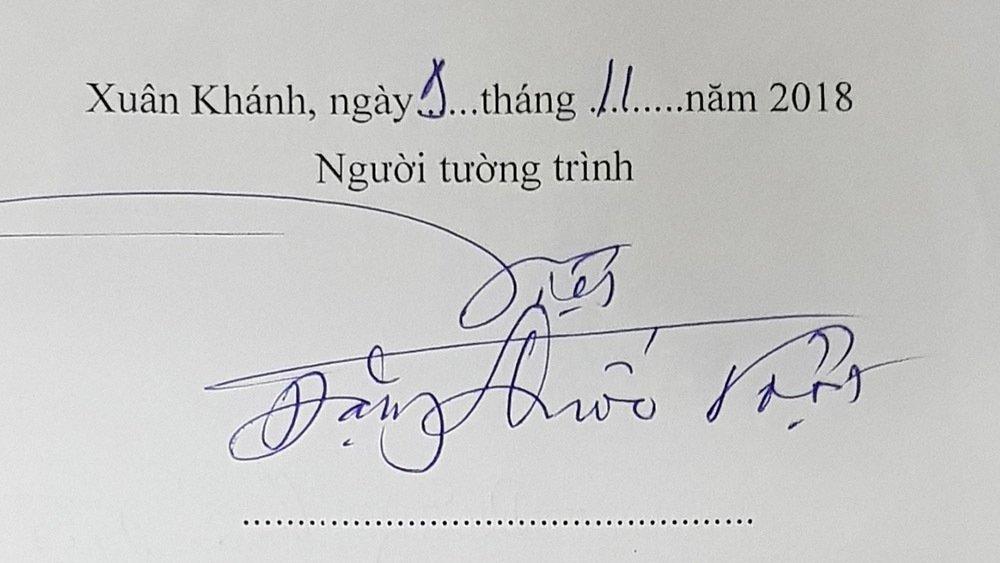 Xuân Khánh, ngày ... tháng .11......năm 2018
Người tường trình
Đặng Quốc
......................................................